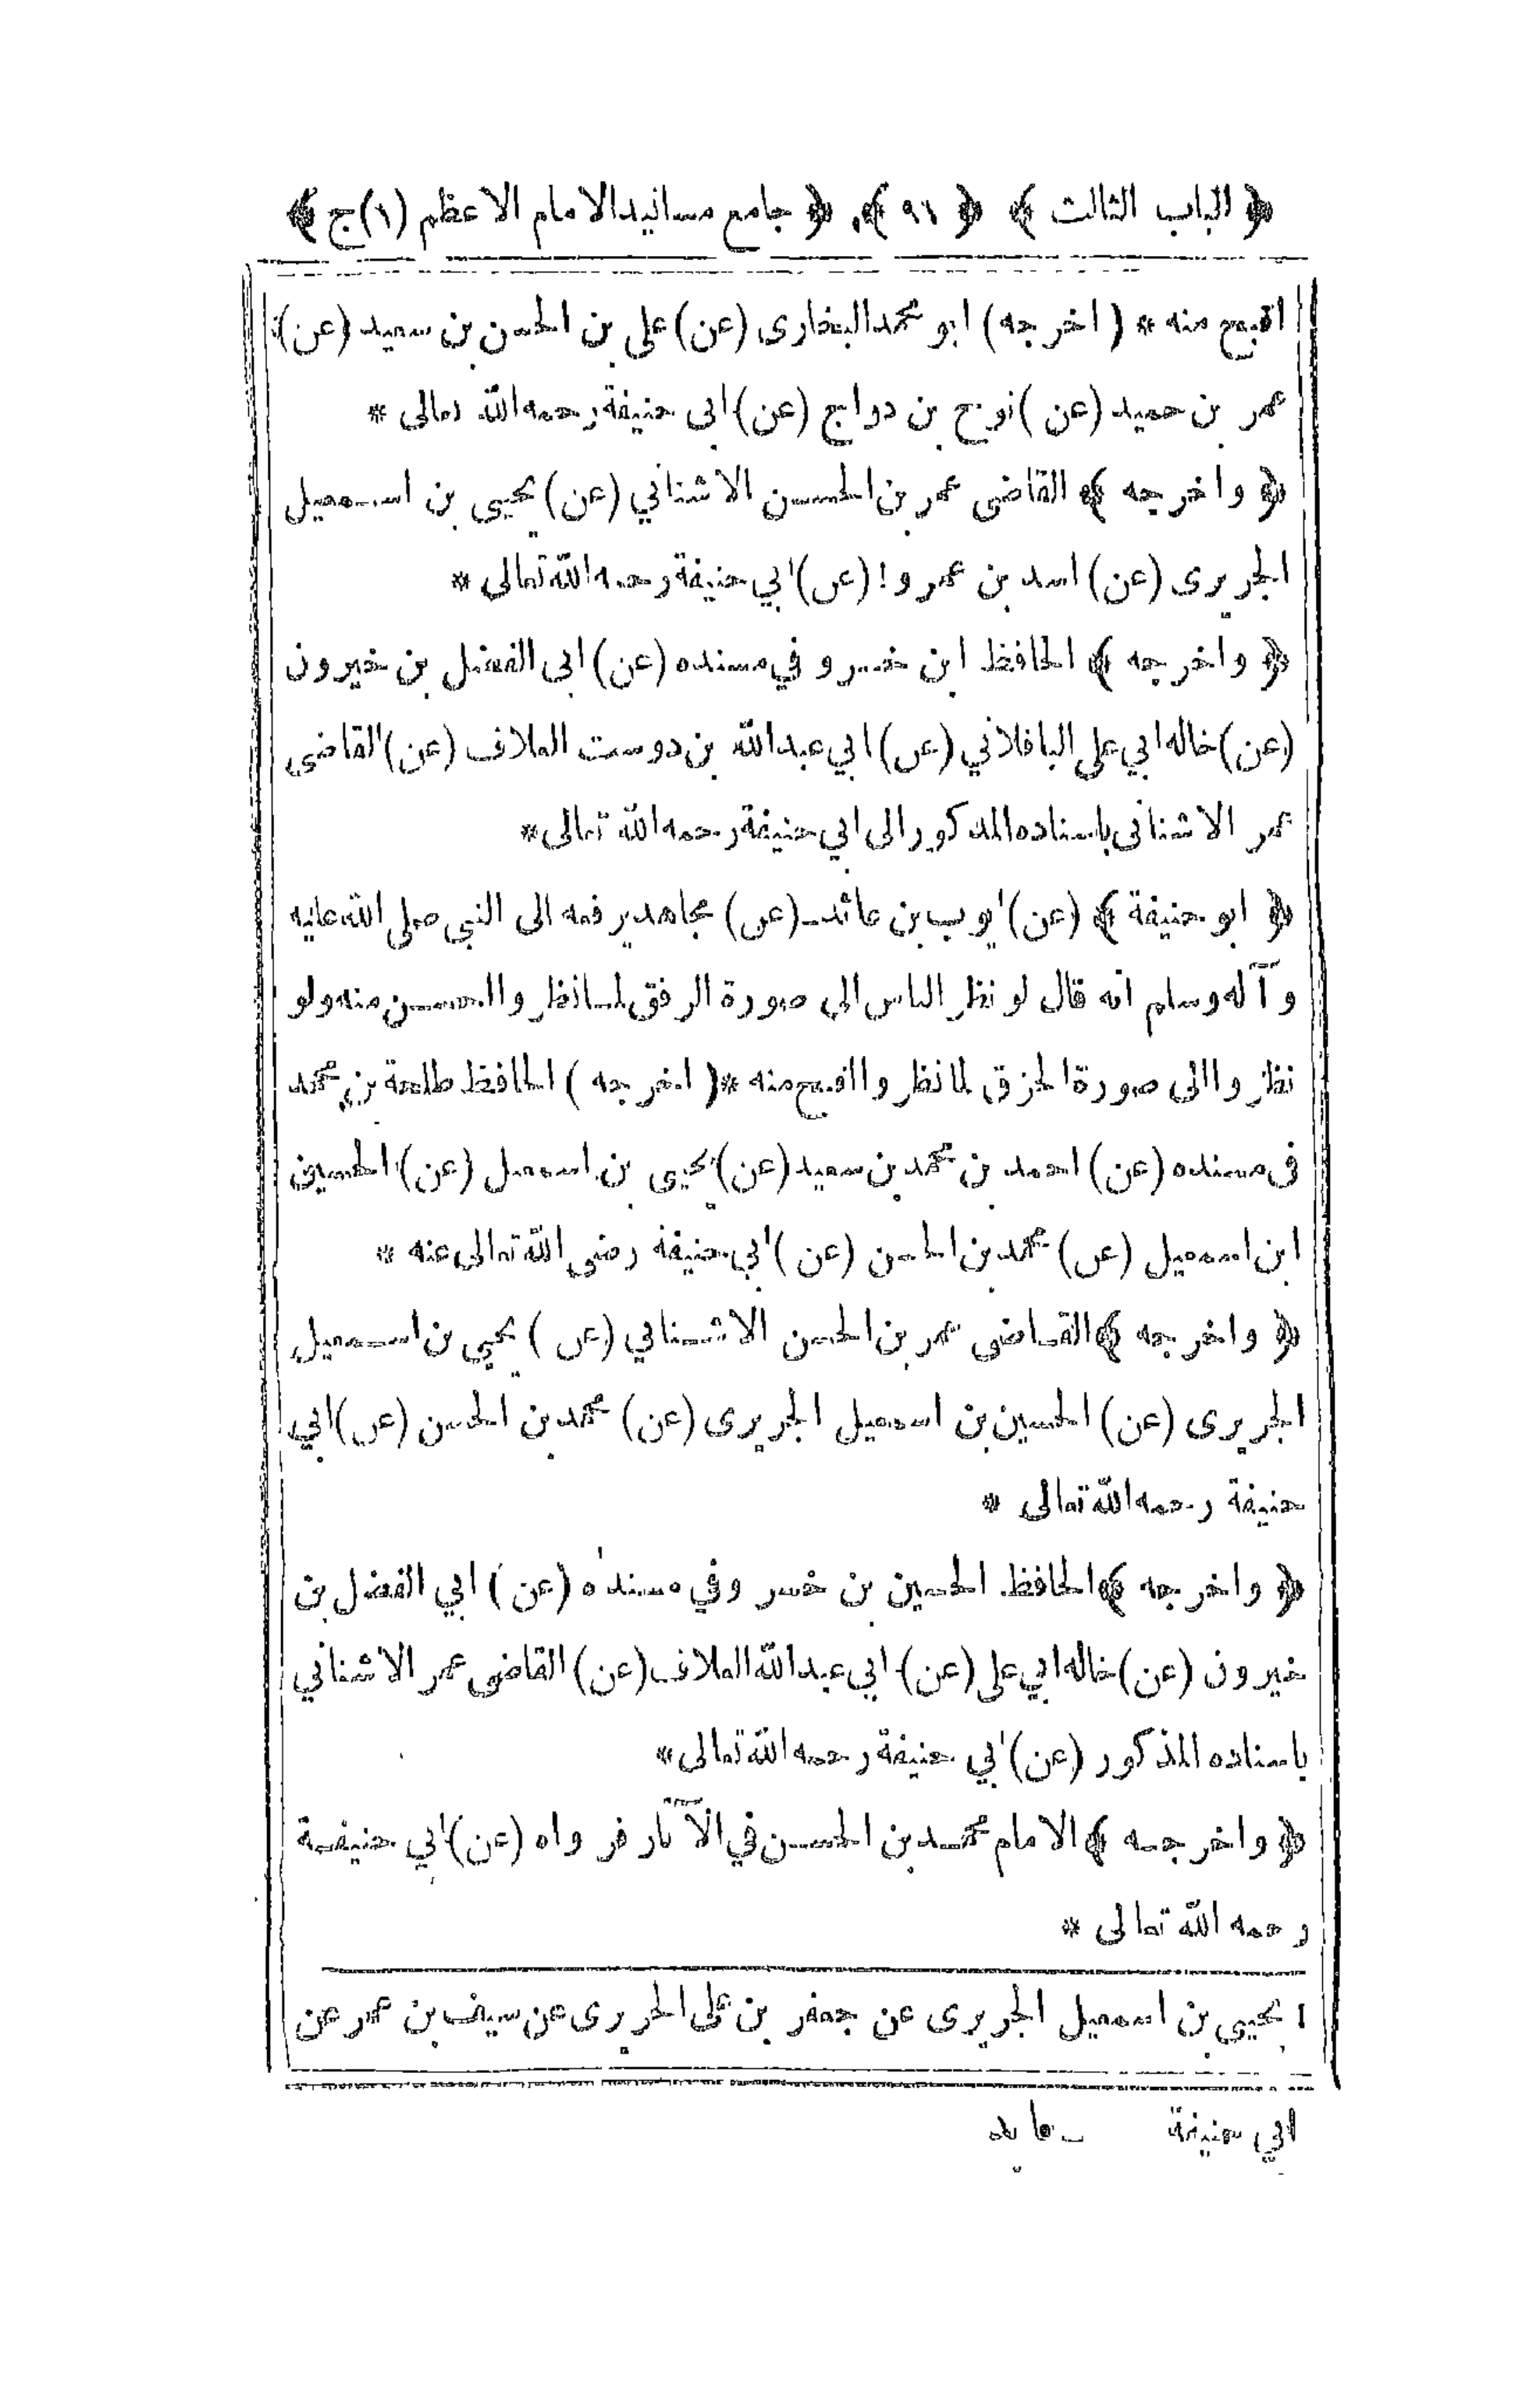 ﴿ الباب الثالث ﴾ ﴿ ٩١ ﴾ ﴿ جامع مسانيد الامام الاعظم (١) ج ﴾
اقبح منه * ( اخرجه ) ابو محمد البخارى (عن) على بن الحسن بن سعيد (عن)
عمر بن حميد (عن) نوح بن دراج (عن) ابى حنيفة رحمه الله تعالى *
﴿ واخرجه ﴾ القاضى عمر بن الحسن الاشناني (عن) يحيى بن اسمعيل
الجريرى (عن) اسد بن عمرو ١ (عن) ابي حنيفة رحمه الله تعالى *
﴿ واخرجه ﴾ الحافظ ابن خسرو في مسنده (عن) ابى الفضل بن خيرون
(عن) خاله ابي على الباقلاني (عن) ابي عبد الله بن دوست العلاف (عن) القاضى
عمر الاشنانى باسناده المذكور الى ابي حنيفة رحمه الله تعالى *
﴿ ابو حنيفة ﴾ (عن) ايوب بن عائذ (عن) مجاهد يرفعه الى النبى صلى الله عليه
وآله وسلم انه قال لو نظر الناس الى صورة الرفق لما نظروا الى احسن منه ولو
نظروا الى صورة الخرق لما نظروا اقبح منه * ( اخرجه ) الحافظ طلحة بن محمد
فى مسنده (عن) احمد بن محمد بن سعيد (عن) يحيى بن اسمعيل (عن) الحسين
ابن اسمعيل (عن) محمد بن الحسن (عن) ابي حنيفة رضى الله تعالى عنه *
﴿ واخرجه ﴾ القاضى عمر بن الحسن الاشناني (عن) يحيى بن اسمعيل
الجريرى (عن) الحسين بن اسمعيل الجريرى (عن) محمد بن الحسن (عن) ابي
حنيفة رحمه الله تعالى *
﴿ واخرجه ﴾ الحافظ الحسين بن خسرو في مسنده (عن) ابي الفضل بن
خيرون (عن) خاله ابي على (عن) ابي عبد الله العلاف (عن) القاضى عمر الاشناني
باسناده المذكور (عن) ابي حنيفة رحمه الله تعالى *
﴿ واخرجه ﴾ الامام محمد بن الحسن في الآثار فرواه (عن) ابي حنيفة
رحمه الله تعالى *
١ يحيى بن اسمعيل الجريرى عن جعفر بن على الجريرى عن سيف بن عمر عن
ابي حنيفة